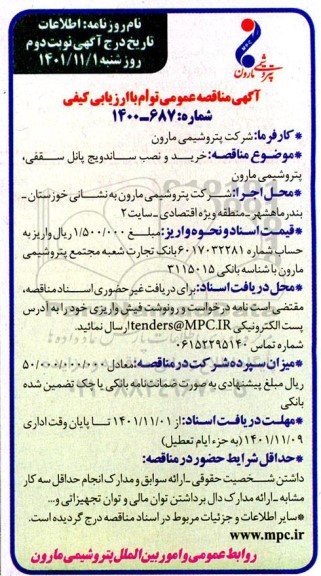 نام روزنامه: اطلاعات
تاریخ درج آگهی نوبت دوم
روز شنبه ۱۴۰۱/۱۱/۱
پتروشیمی مارون
آگهی مناقصه عمومی توام با ارزیابی کیفی
شماره: ۶۸۷-۱۴۰۰
*کارفرما: شرکت پتروشیمی مارون
*موضوع مناقصه: خرید و نصب ساندویچ پانل سقفی، پتروشیمی مارون
*محل اجرا: شرکت پتروشیمی مارون به نشانی خوزستان - بندرماهشهر - منطقه ویژه اقتصادی - سایت ۲
*قیمت اسناد و نحوه واریز: مبلغ ۱/۵۰۰/۰۰۰ ریال واریز به حساب شماره ۶۰۱۷۰۳۲۲۸۱ بانک تجارت شعبه مجتمع پتروشیمی مارون با شناسه بانکی ۳۱۱۵۰۱۵
*محل دریافت اسناد: برای دریافت غیرحضوری اسناد مناقصه، مقتضی است نامه درخواست و رونوشت فیش واریزی خود را به آدرس پست الکترونیکی tenders@MPC.IR ارسال نمائید.
شماره تماس ۰۶۱۵۲۲۹۵۱۴۰
*میزان سپرده شرکت در مناقصه: معادل ۵۰/۰۰۰/۰۰۰/۰۰۰ ریال مبلغ پیشنهادی به صورت ضمانت‌نامه بانکی یا چک تضمین شده بانکی
*مهلت دریافت اسناد: از ۱۴۰۱/۱۱/۰۱ تا پایان وقت اداری ۱۴۰۱/۱۱/۰۹ (به جزء ایام تعطیل)
*حداقل شرایط حضور در مناقصه:
داشتن شخصیت حقوقی - ارائه سوابق و مدارک انجام حداقل سه کار مشابه - ارائه مدارک دال بر داشتن توان مالی و توان تجهیزاتی و...
*سایر اطلاعات و جزئیات مربوط در اسناد مناقصه درج گردیده است.
www.mpc.ir
روابط عمومی و امور بین الملل پتروشیمی مارون